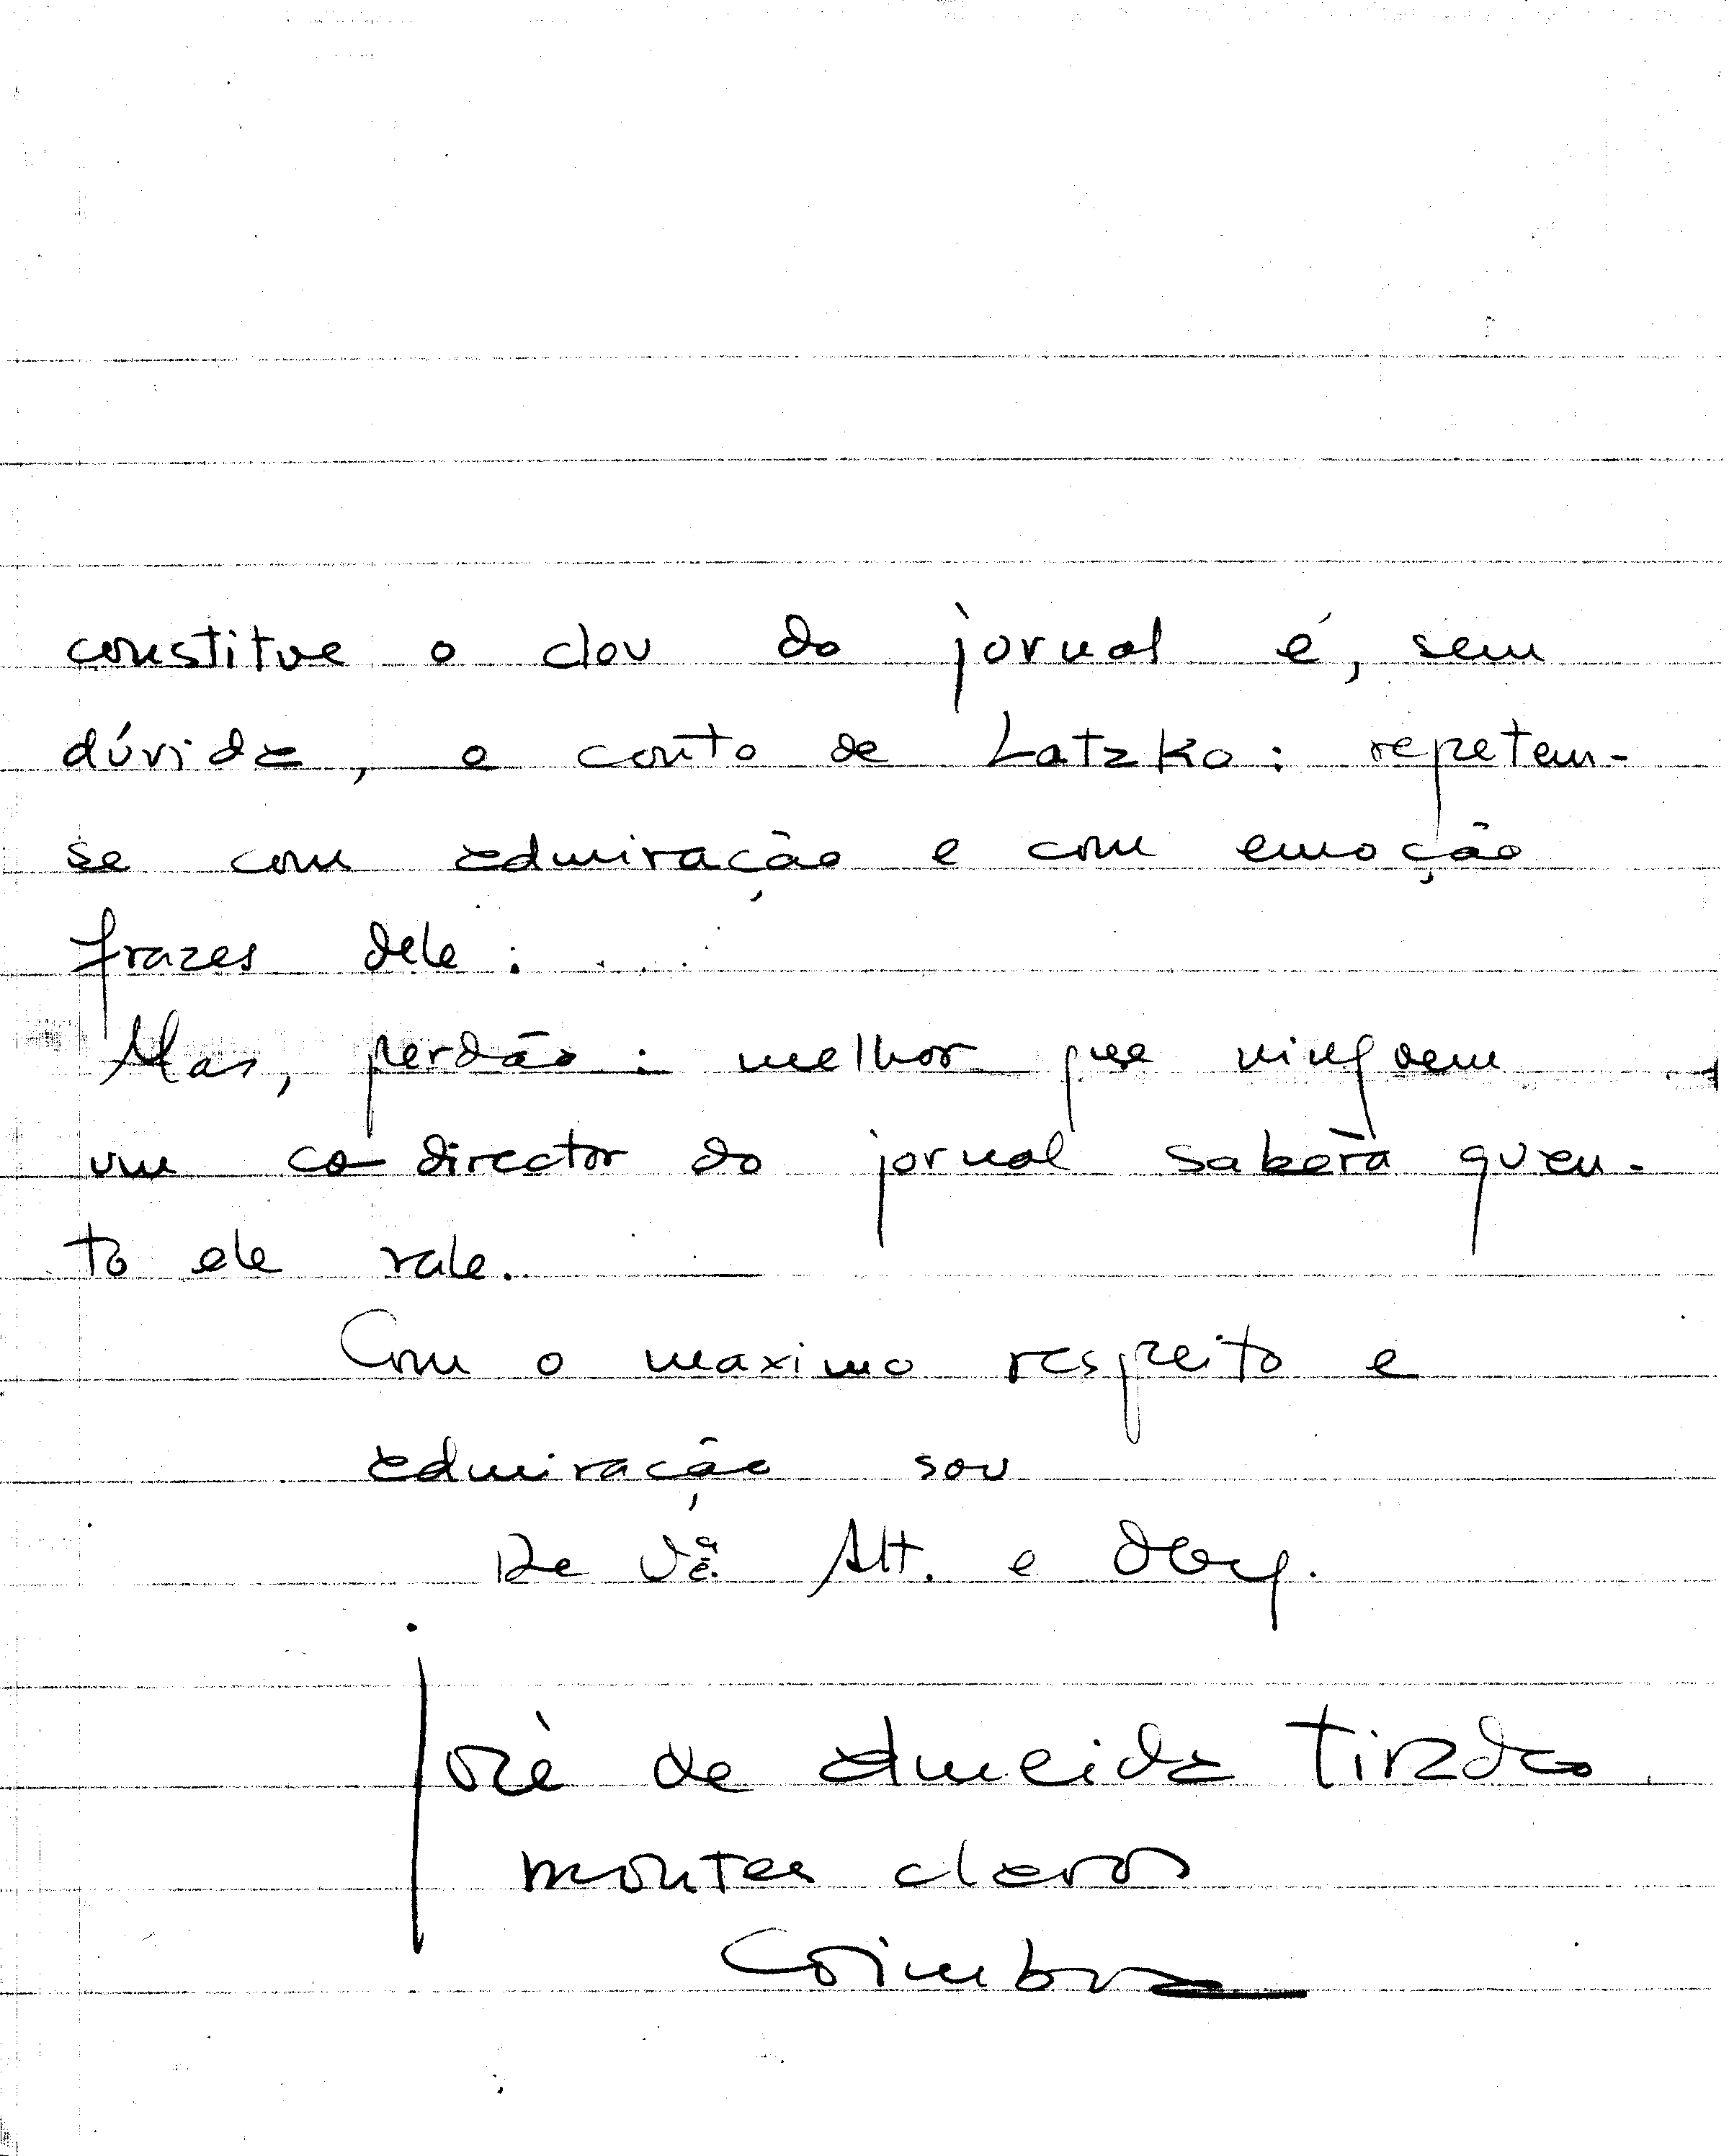 constitue o clou do jornal é, sem
dúvida, o conto de Latzko: repetem-
se com admiração e com emoção
frazes dele: ....
Mas, perdão: melhor que ninguem
um co-director do jornal saberà quan-
to ele vale.
Com o maximo respeito e
admiração sou
De Vª Eª Att. e Obg.
José de almeida Tirado
montes claros
Coimbra